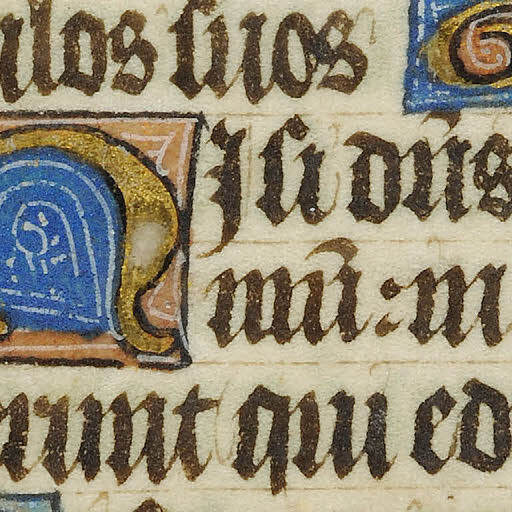 ulos suos
NIsi dn̄s
mū : in
erunt qui ed